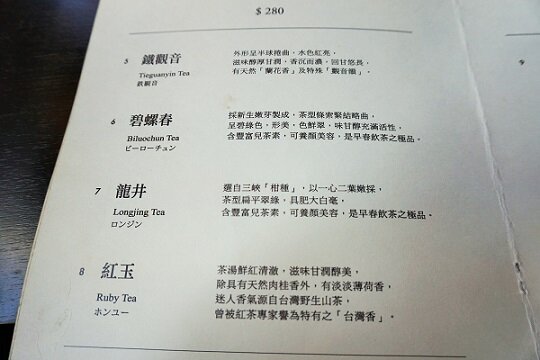 $ 280
5 鐵觀音
Tieguanyin Tea
鉄観音
外形呈半球捲曲，水色紅亮，
滋味醇厚甘潤，香沉而濃，回甘悠長，
有天然「蘭花香」及特殊「觀音韻」。
6 碧螺春
Biluochun Tea
ピーローチュン
採新生嫩芽製成，茶型條索緊結略曲，
呈碧綠色，形美，色鮮翠，味甘醇充滿活性，
含豐富兒茶素，可養顏美容，是早春飲茶之極品。
7 龍井
Longjing Tea
ロンジン
選自三峽「柑種」，以一心二葉嫩採，
茶型扁平翠綠，具肥大白毫，
含豐富兒茶素，可養顏美容，是早春飲茶之極品。
8 紅玉
Ruby Tea
ホンユー
茶湯鮮紅清澈，滋味甘潤醇美，
除具有天然肉桂香外，有淡淡薄荷香，
迷人香氣源自台灣野生山茶，
曾被紅茶專家譽為特有之「台灣香」。